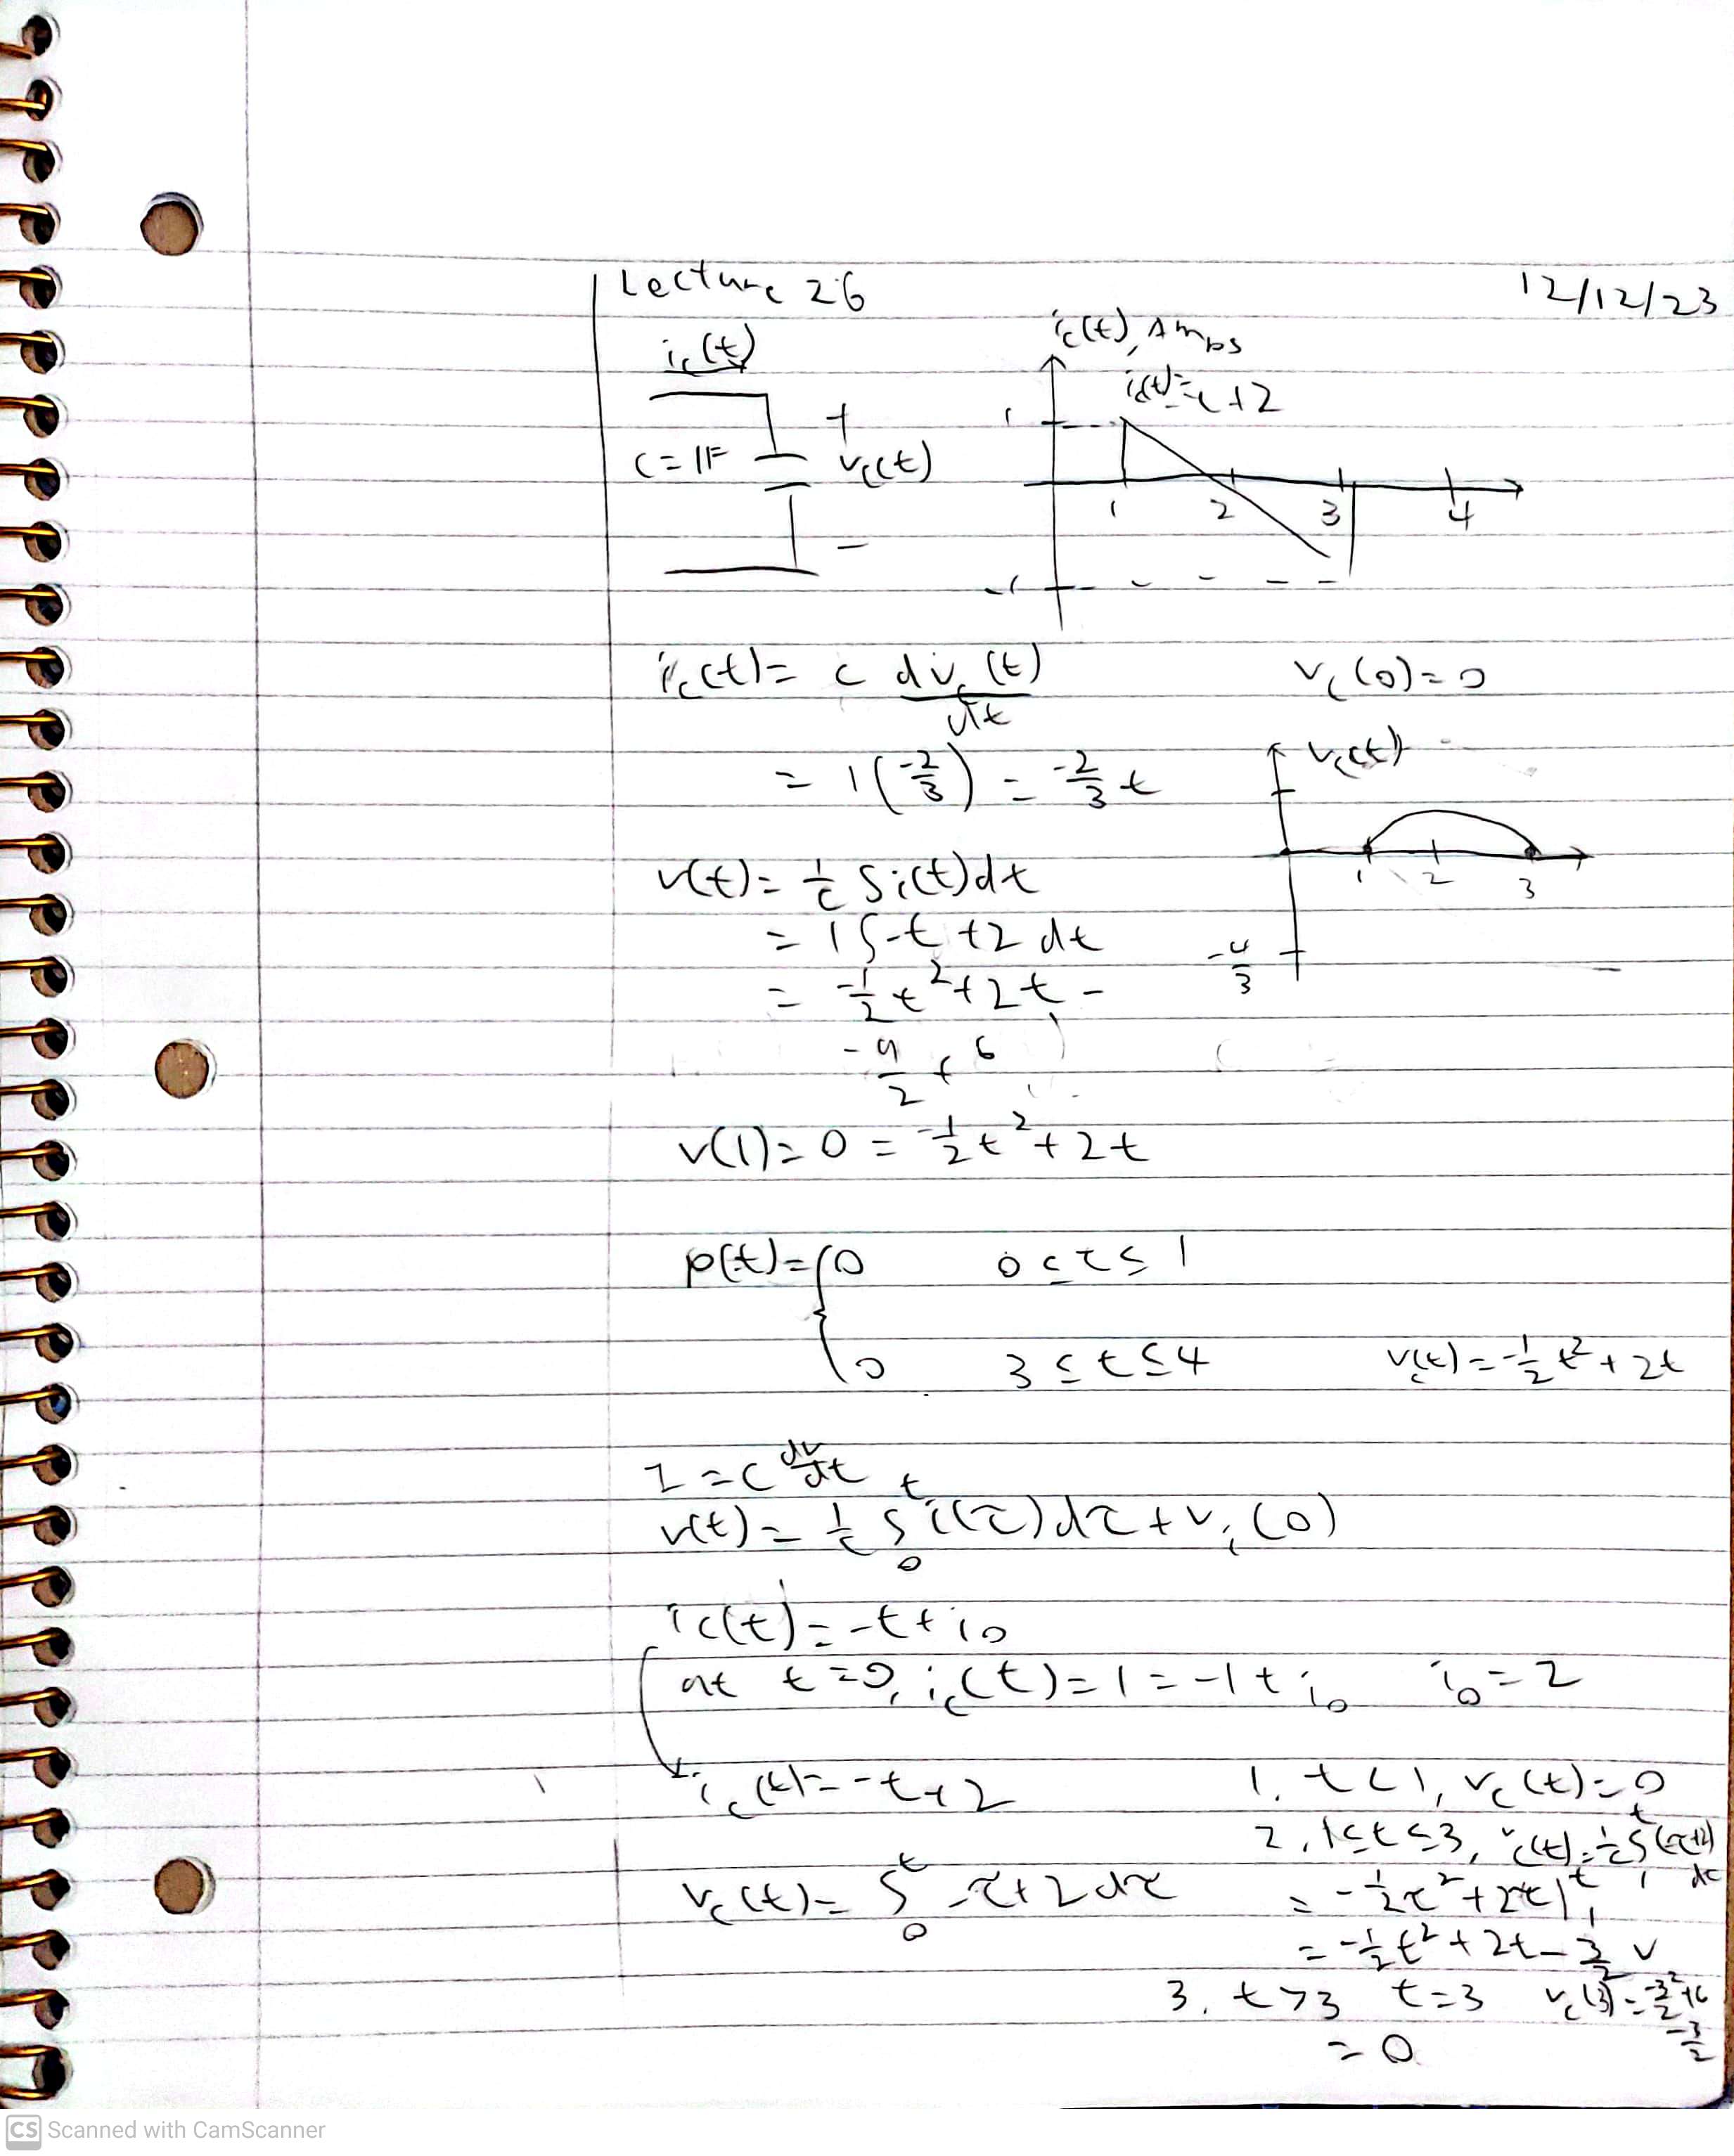 Lecture 26
12/12/23
i_c(t)
C = 1F
+
v_c(t)
−
i_c(t), Amps
i_c(t) = -t + 2
1
-1
1 2 3 4
i_c(t) = C dv_c(t)/dt
v_c(0) = 0
= 1(-2/3) = -2/3 t
v_c(t)
1 2 3
-4/3
v(t) = 1/C ∫i(t)dt
= 1∫-t + 2 dt
= -1/2 t² + 2t -
-9/2 + 6
v(1) = 0 = -1/2 t² + 2t
p(t) = { 0 0 ≤ t ≤ 1
0 3 ≤ t ≤ 4
v_c(t) = -1/2 t² + 2t
I = C dv/dt
v(t) = 1/C ∫₀ᵗ i(τ)dτ + v_c(0)
i_c(t) = -t + i₀
at t = 0, i_c(t) = 1 = -1 + i₀ i₀ = 2
i_c(t) = -t + 2
v_c(t) = ∫₀ᵗ -τ + 2 dτ
1. t < 1, v_c(t) = 0
2. 1 ≤ t ≤ 3, v_c(t) = 1/C ∫₁ᵗ (-τ+2) dτ
= -1/2 τ² + 2τ |₁ᵗ
= -1/2 t² + 2t - 3/2 V
3. t > 3 t = 3 v_c(3) = -3²/2 + 6 - 3/2
= 0
CS Scanned with CamScanner